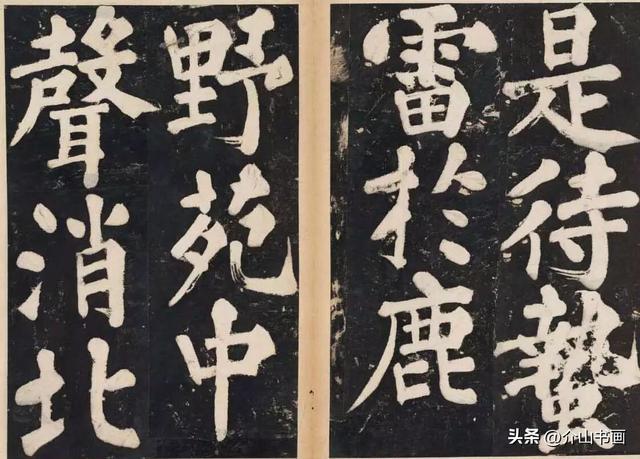 是待蟄
雷於鹿
野苑中
聲消北
头条 @介山书画